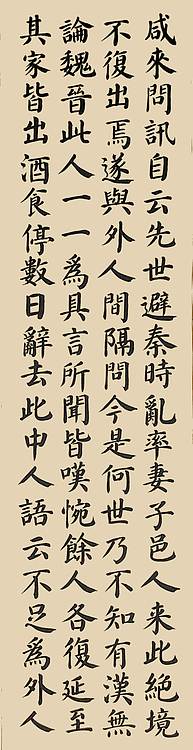 咸來問訊自云先世避秦時亂率妻子邑人來此絕境
不復出焉遂與外人間隔問今是何世乃不知有漢無
論魏晉此人一一爲具言所聞皆嘆惋餘人各復延至
其家皆出酒食停數日辭去此中人語云不足爲外人